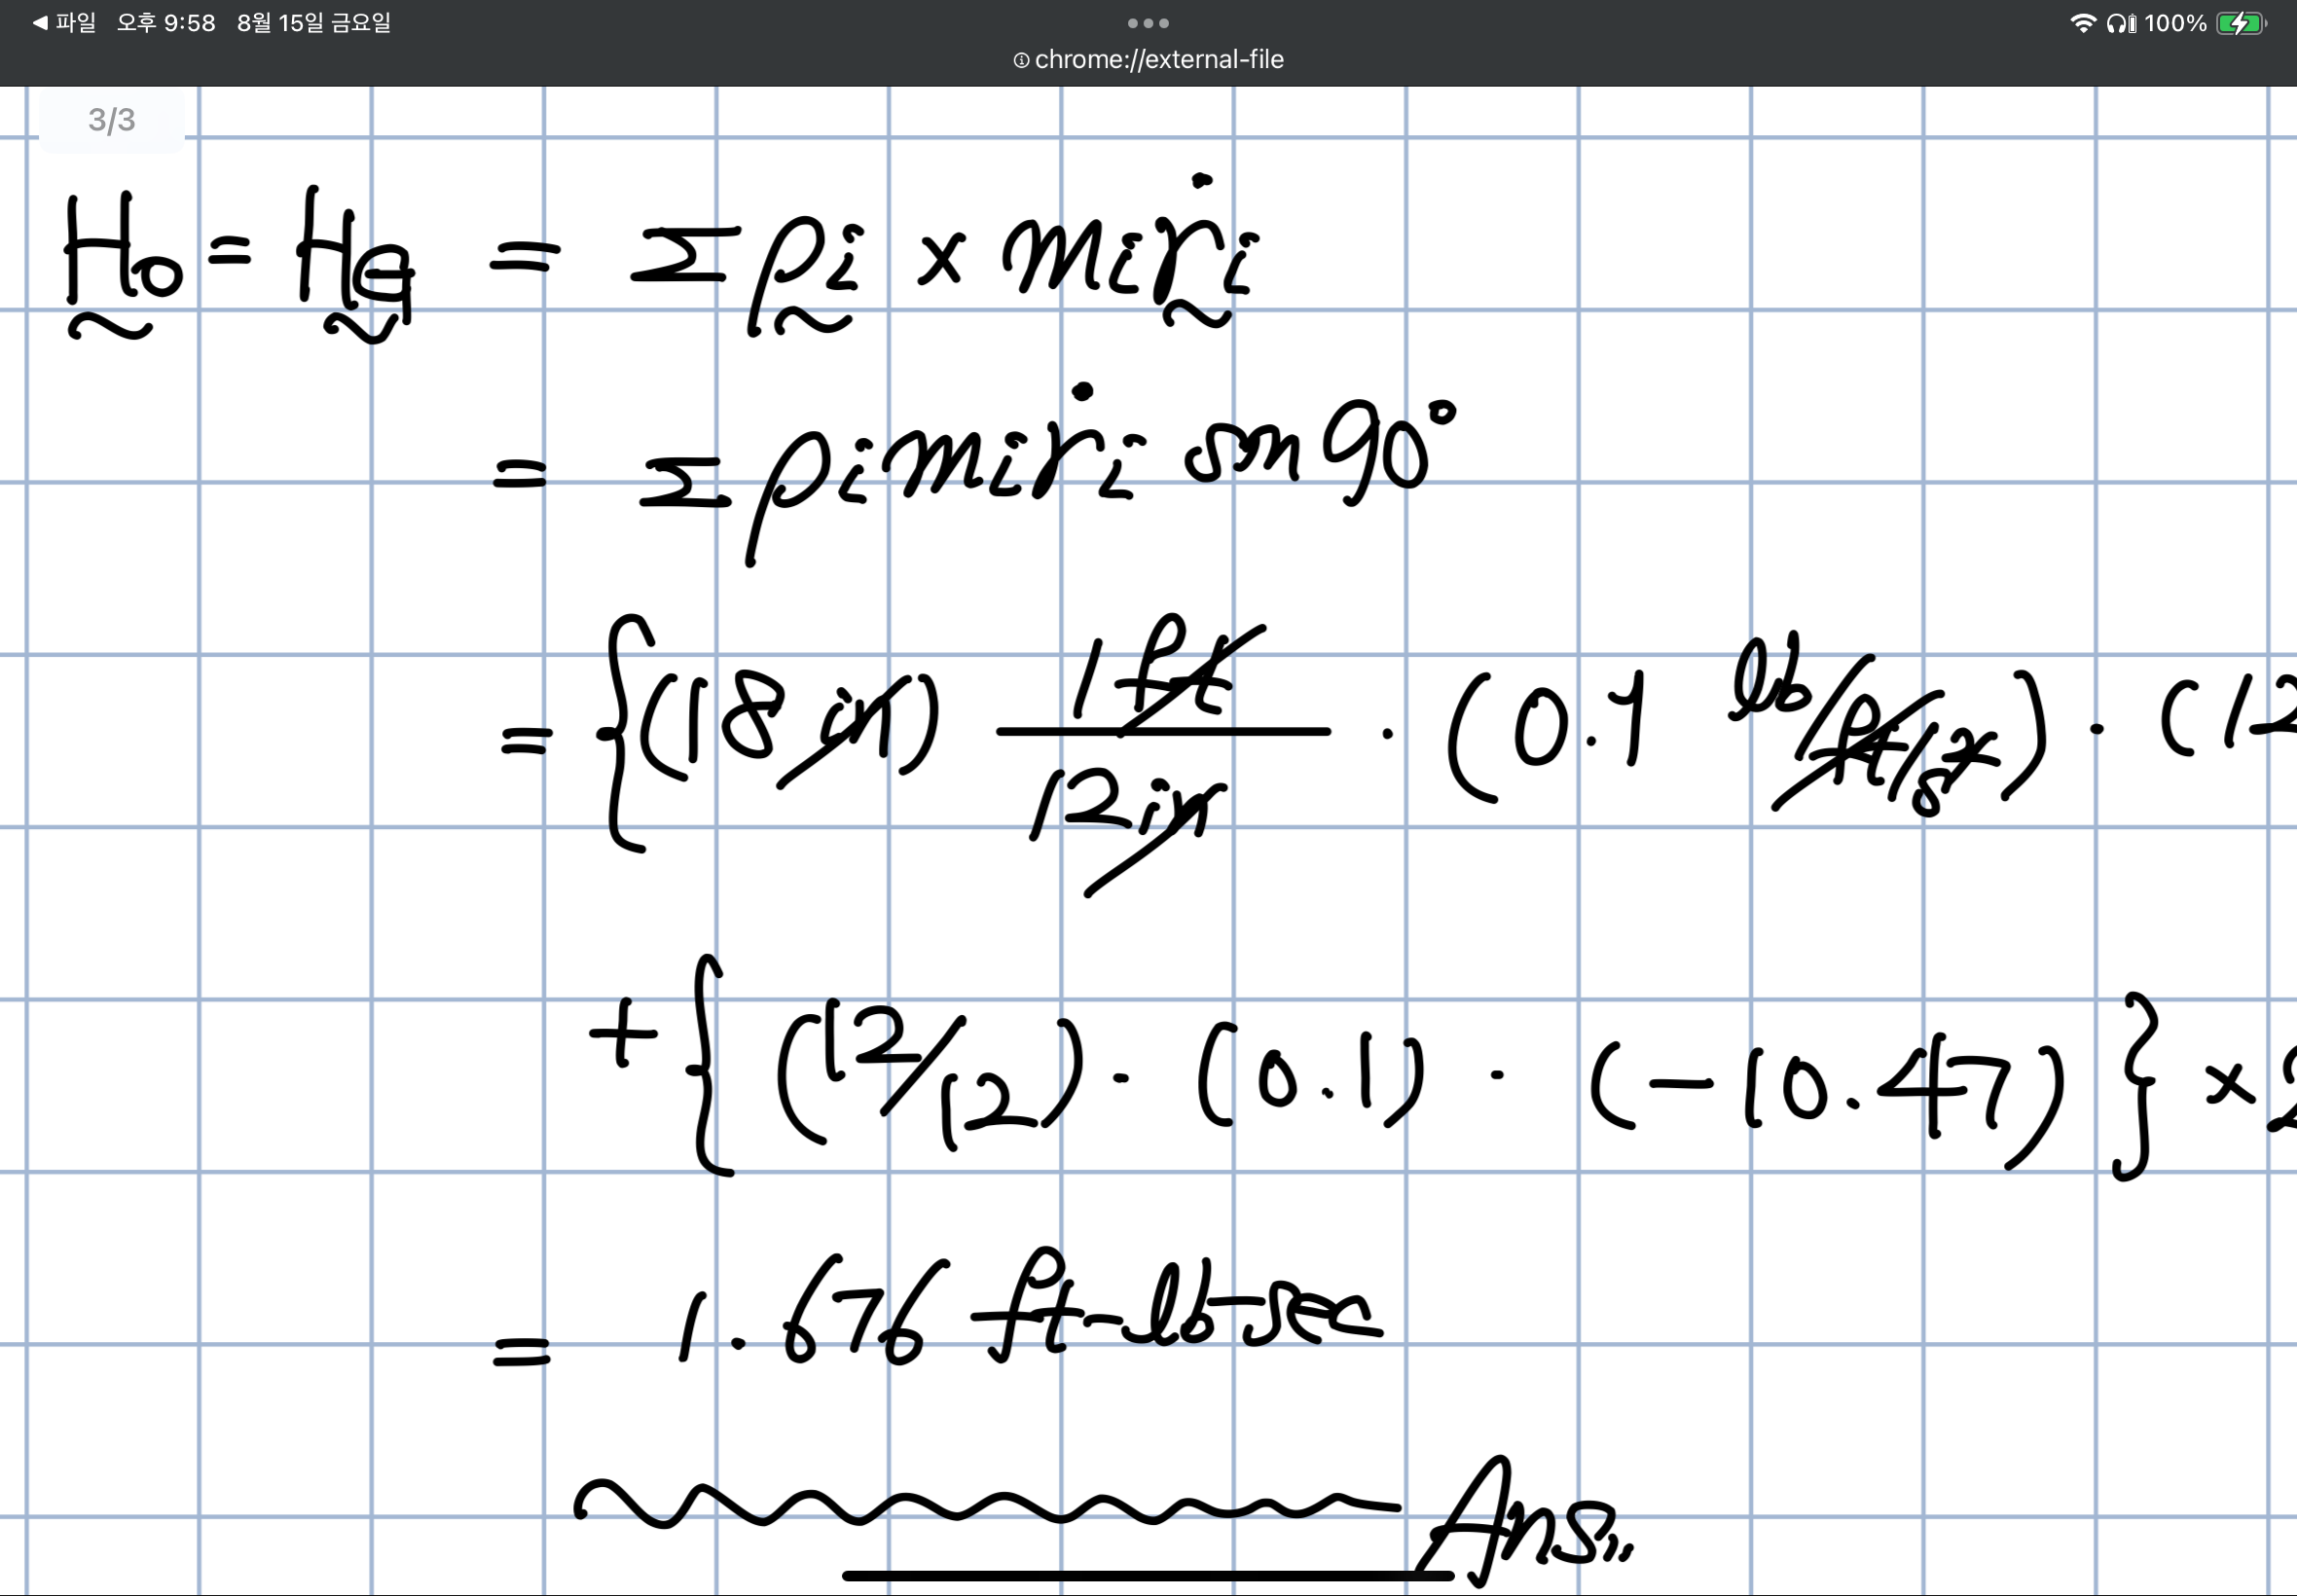 파일 오후 9:58 8월 15일 금요일 100%
chrome://external-file
3/3
H₀ = H_G = Σ ρᵢ × mᵢṙᵢ
= Σ ρᵢ mᵢ ṙᵢ sin 90°
= {(18 in) 1 ft / 12 in · (0.1 lb/ft/s²) · (12
+ {(12/12) · (0.1) · (-10.47)} × 2
= 1.676 ft-lb-sec
Ans.